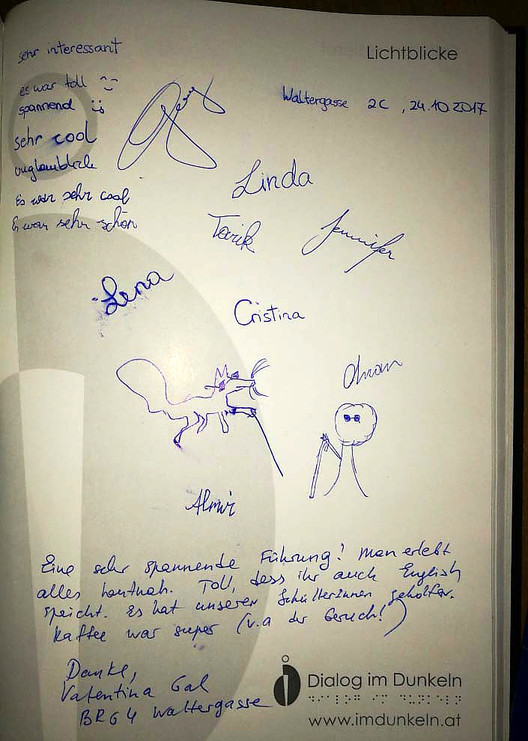 Lichtblicke
sehr interessant
es war toll
spannend
sehr cool
unglaublich
Es war sehr cool
Es war sehr schön
Waltergasse 2C, 24.10.2017
Linda
Tarik
Jennifer
Lena
Cristina
Almir
Eine sehr spannende Führung! Man erlebt
alles hautnah. Toll, dass ihr auch English
speicht. Es hat unseren SchülerInnen geholfen.
Kaffee war super (v.a der Geruch!)
Danke,
Valentina Gal
BRG4 Waltergasse
Dialog im Dunkeln
www.imdunkeln.at